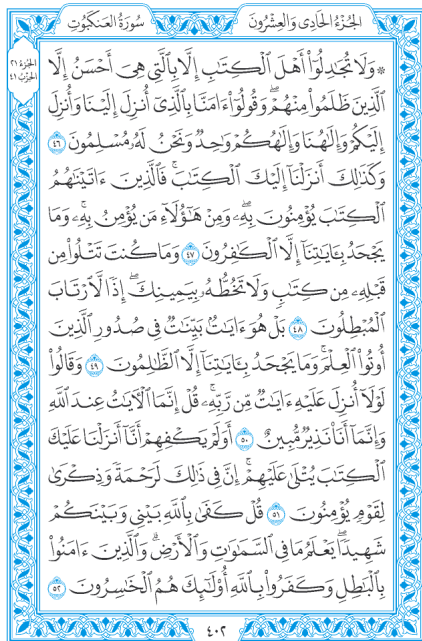 الجُزْءُ الحَادِى وَالعِشْرُونَ
سُورَةُ العَنكَبُوتِ
الجزء ٢١
الحزب ٤١
۞ وَلَا تُجَٰدِلُوٓا۟ أَهْلَ ٱلْكِتَٰبِ إِلَّا بِٱلَّتِى هِىَ أَحْسَنُ إِلَّا
ٱلَّذِينَ ظَلَمُوا۟ مِنْهُمْ ۖ وَقُولُوٓا۟ ءَامَنَّا بِٱلَّذِىٓ أُنزِلَ إِلَيْنَا وَأُنزِلَ
إِلَيْكُمْ وَإِلَٰهُنَا وَإِلَٰهُكُمْ وَٰحِدٌ وَنَحْنُ لَهُۥ مُسْلِمُونَ ٤٦
وَكَذَٰلِكَ أَنزَلْنَآ إِلَيْكَ ٱلْكِتَٰبَ ۚ فَٱلَّذِينَ ءَاتَيْنَٰهُمُ
ٱلْكِتَٰبَ يُؤْمِنُونَ بِهِۦ ۖ وَمِنْ هَٰٓؤُلَآءِ مَن يُؤْمِنُ بِهِۦ ۚ وَمَا
يَجْحَدُ بِـَٔايَٰتِنَآ إِلَّا ٱلْكَٰفِرُونَ ٤٧ وَمَا كُنتَ تَتْلُوا۟ مِن
قَبْلِهِۦ مِن كِتَٰبٍ وَلَا تَخُطُّهُۥ بِيَمِينِكَ ۖ إِذًا لَّٱرْتَابَ
ٱلْمُبْطِلُونَ ٤٨ بَلْ هُوَ ءَايَٰتٌۢ بَيِّنَٰتٌ فِى صُدُورِ ٱلَّذِينَ
أُوتُوا۟ ٱلْعِلْمَ ۚ وَمَا يَجْحَدُ بِـَٔايَٰتِنَآ إِلَّا ٱلظَّٰلِمُونَ ٤٩ وَقَالُوا۟
لَوْلَآ أُنزِلَ عَلَيْهِ ءَايَٰتٌ مِّن رَّبِّهِۦ ۖ قُلْ إِنَّمَا ٱلْـَٔايَٰتُ عِندَ ٱللَّهِ
وَإِنَّمَآ أَنَا۠ نَذِيرٌ مُّبِينٌ ٥٠ أَوَلَمْ يَكْفِهِمْ أَنَّآ أَنزَلْنَا عَلَيْكَ
ٱلْكِتَٰبَ يُتْلَىٰ عَلَيْهِمْ ۚ إِنَّ فِى ذَٰلِكَ لَرَحْمَةً وَذِكْرَىٰ
لِقَوْمٍ يُؤْمِنُونَ ٥١ قُلْ كَفَىٰ بِٱللَّهِ بَيْنِى وَبَيْنَكُمْ
شَهِيدًا ۖ يَعْلَمُ مَا فِى ٱلسَّمَٰوَٰتِ وَٱلْأَرْضِ ۗ وَٱلَّذِينَ ءَامَنُوا۟
بِٱلْبَٰطِلِ وَكَفَرُوا۟ بِٱللَّهِ أُو۟لَٰٓئِكَ هُمُ ٱلْخَٰسِرُونَ ٥٢
٤٠٢